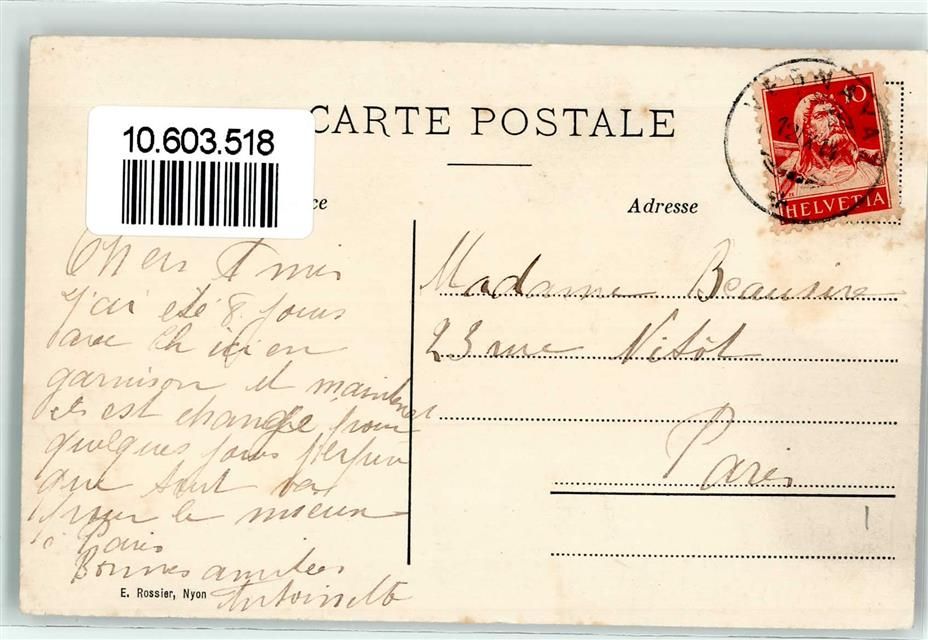 10.603.518
CARTE POSTALE
ce
Adresse
10
HELVETIA
Chers Amis
j'ai été 8 jours
avec Ch ici en
garnison et maintenant
ils est changé pour
quelques jours
que tout va
pour le mieux
à Paris
Bonnes amitiées
Antoinette
Madame Beausire
23 rue Nitôt
Paris
1
E. Rossier, Nyon